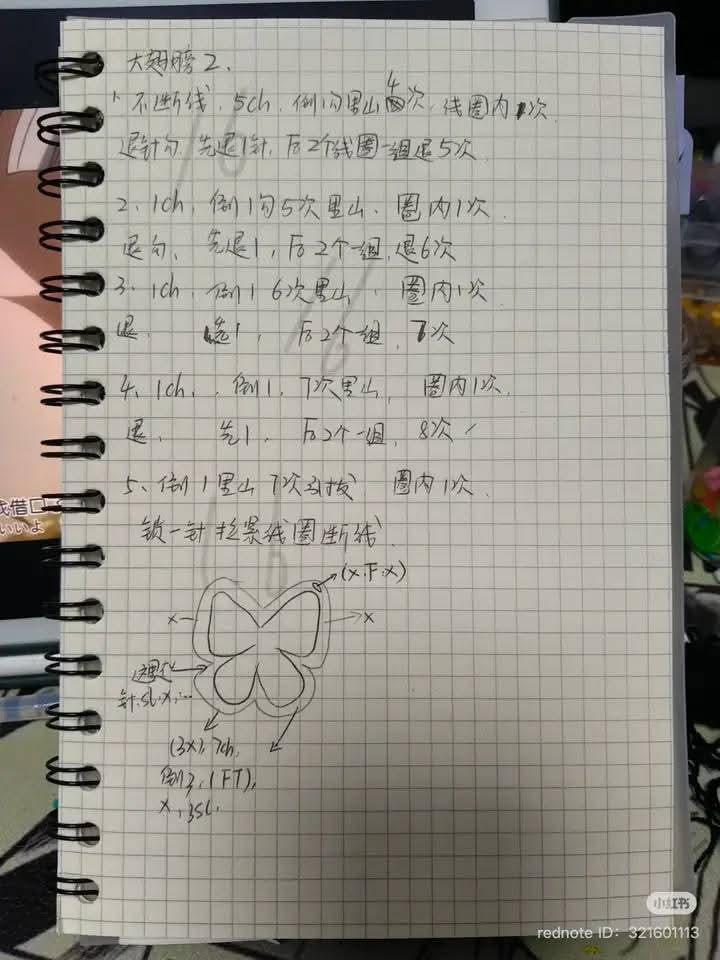 大翅膀2.
1、不断线.5ch.倒1勾里山4次.线圈内1次.
退针勾.先退1针,后2个线圈一组退5次
2、1ch,倒1勾5次里山、圈内1次.
退勾、先退1,后2个一组,退6次
3、1ch,倒1 6次里山、圈内1次
退、先1,后2个组,7次
4、1ch,倒1、7次里山,圈内1次.
退、先1、后2个一组,8次
5、倒1里山7次引拔 圈内1次.
锁一针拉紧线圈断线.
(x.F.x)
x
x
这里起
针.sl.x,...
(3x),7ch,
倒3,(FT),
x,3sl.
找借口
いいよ
小红书
rednote ID: 321601113